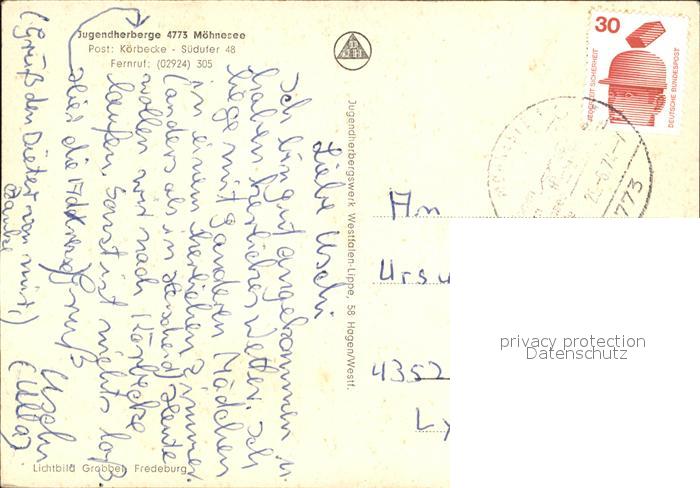 Jugendherberge 4773 Möhnesee
Post: Körbecke - Südufer 48
Fernruf: (02924) 305
Liebe Uschi.
Ich bin gut angekommen u.
haben herliches Wetter. Ich
liege mit 9 anderen Mädchen
in einem herlichen Zimmer.
(anders als in
Heute
wollen wir nach Körbecke
laufen. Sonst ist nichts loß
hier die
Uschi
(Ulla)
(Gruß den Dieter von mir!)
Danke
Lichtbild Grobbel, Fredeburg
Jugendherbergswerk Westfalen-Lippe, 58 Hagen/Westf.
30
JEDERZEIT SICHERHEIT
DEUTSCHE BUNDESPOST
4773
An
Ursu
4352
Ly
privacy protection
Datenschutz